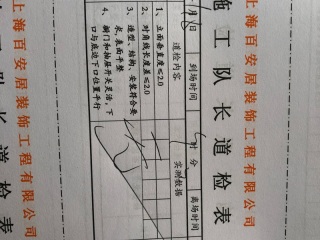 上海百安居装饰工程有限公司
施工队长道检表
月 日 到场时间 时 分 离场时间
道检内容 实测数据
1、立面垂直度≤2.0
2、对角线长度差≤2.0
3、造型、结构、安装符合要
求,表面平整
4、橱门和抽屉开关灵活,下
口与底边下口位置平行
上海百安居装饰工程有限公司
工队长道检表